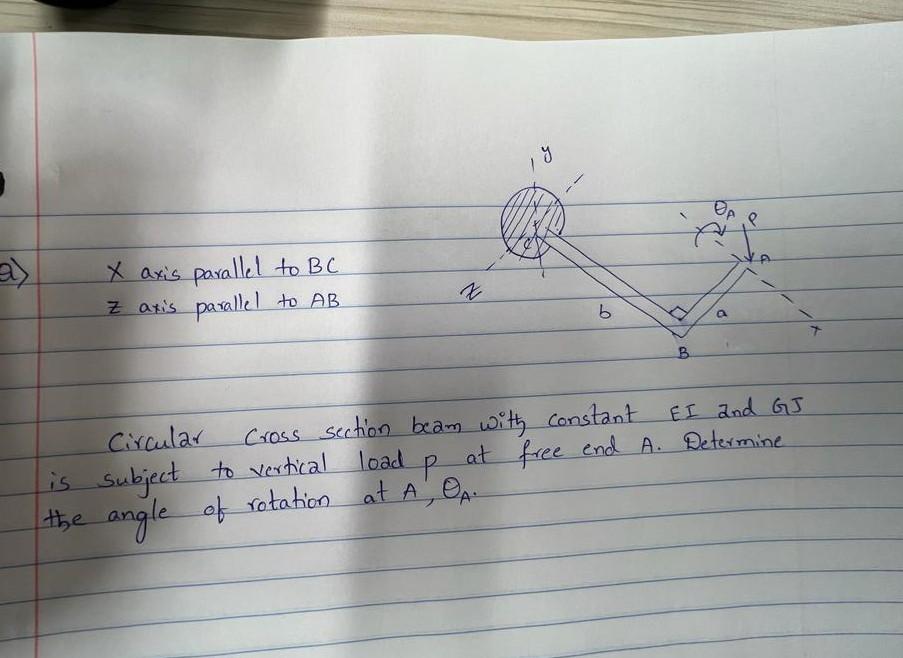 y
θA P
C
A
a) X axis parallel to BC
Z axis parallel to AB
Z
b
a
x
B
Circular Cross section beam with constant EI and GJ
is subject to vertical load p at free end A. Determine
the angle of rotation at A, θA.